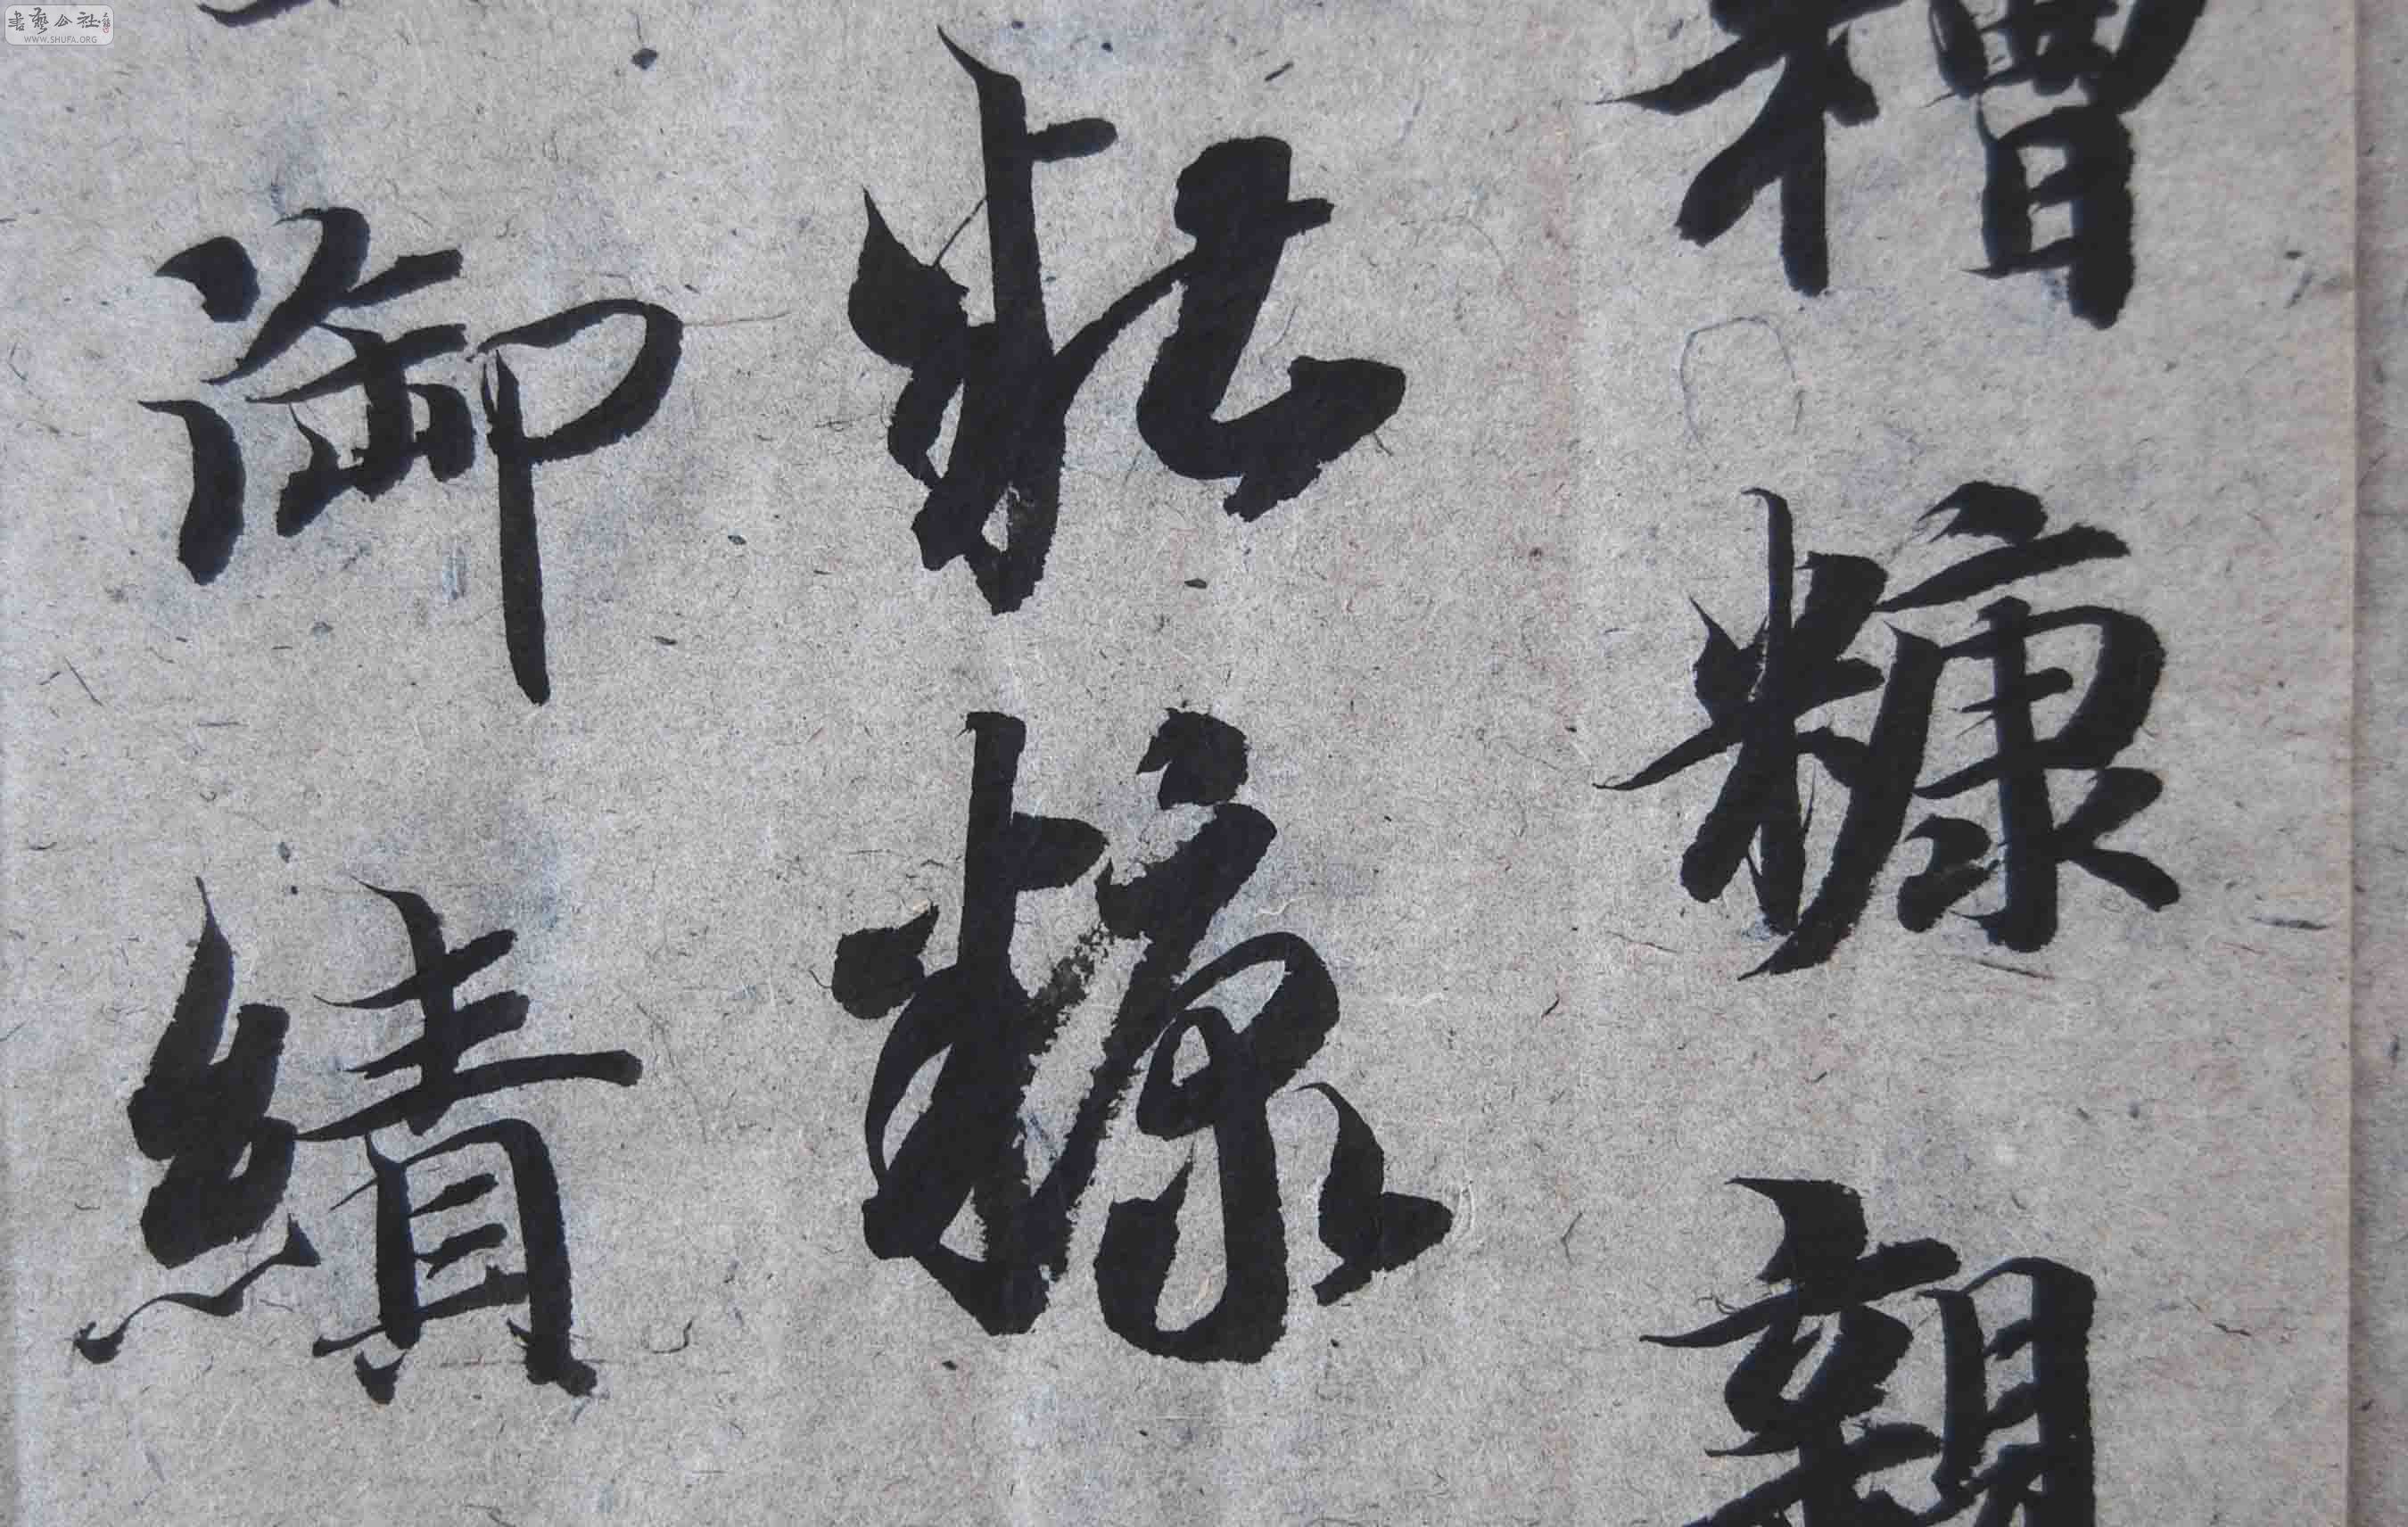 書藝公社
WWW.SHUFA.ORG
糟糠親
糠
御績